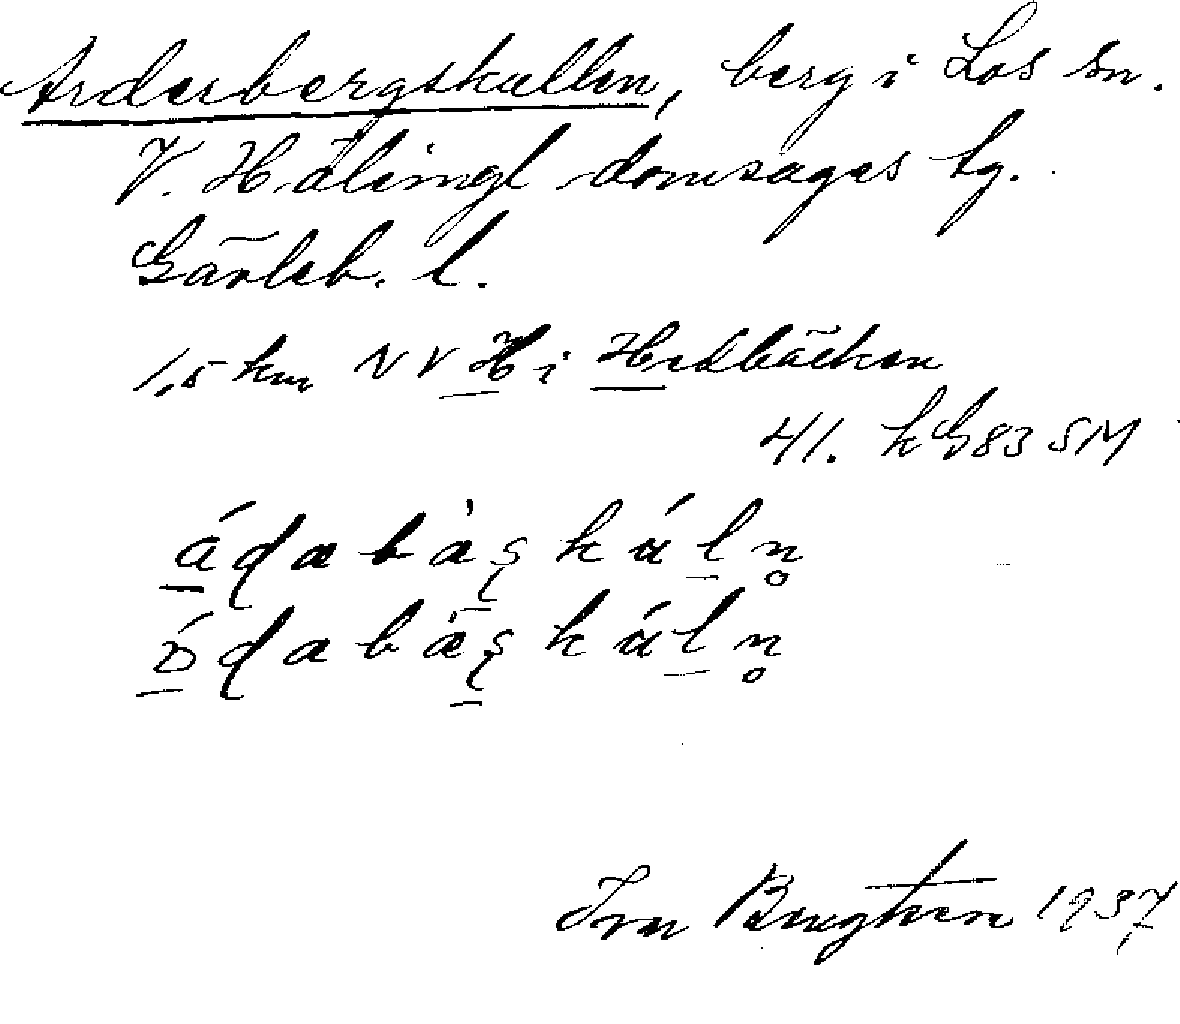 Arderbergskallen, berg i Los sn.
V. Hälsingl domsagas tg.
Gävleb. l.
1,5 km NV H i Hedbäcken
41. kG83 SM
ádabàşkáln̥
ɒ́dabàşkáln̥
1937